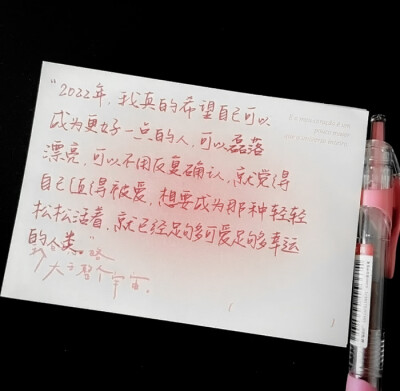 “2022年，我真的希望自己可以
成为更好一点的人，可以磊落
漂亮，可以不用反复确认，就觉得
自己值得被爱，想要成为那种轻轻
松松活着，就已经足够可爱足够幸运
的人类。”